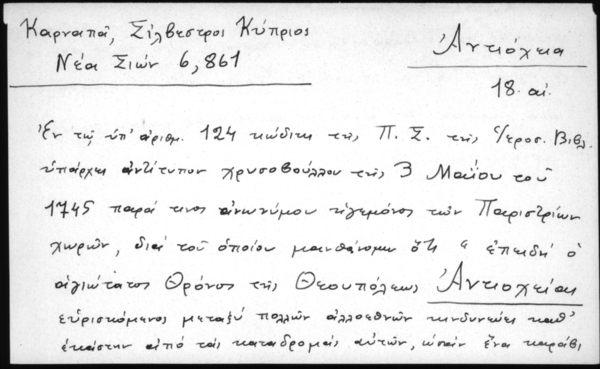 Καρναπᾶ, Σίλβεστρος Κύπριος
Νέα Σιών 6,861
Ἀντιόχεια
18. αἰ.
Ἐν τῷ ὑπ' ἀριθμ. 124 κώδικι τῆς Π. Σ. τῆς Ἱεροσ. Βιβλ.
ὑπάρχει ἀντίτυπον χρυσοβούλλου τῆς 3 Μαΐου τοῦ
1745 παρά τινος ἀνωνύμου ἡγεμόνος τῶν Παριστρίων
χωρῶν, διά τοῦ ὁποίου μανθάνομεν ὅτι " ἐπειδή ὁ
ἁγιώτατος Θρόνος τῆς Θεουπόλεως Ἀντιοχείας
εὑρισκόμενος μεταξύ πολλῶν ἀλλοεθνῶν κινδυνεύει καθ'
ἑκάστην ἀπό τάς καταδρομάς αὐτῶν, ὡσάν ἕνα καράβι